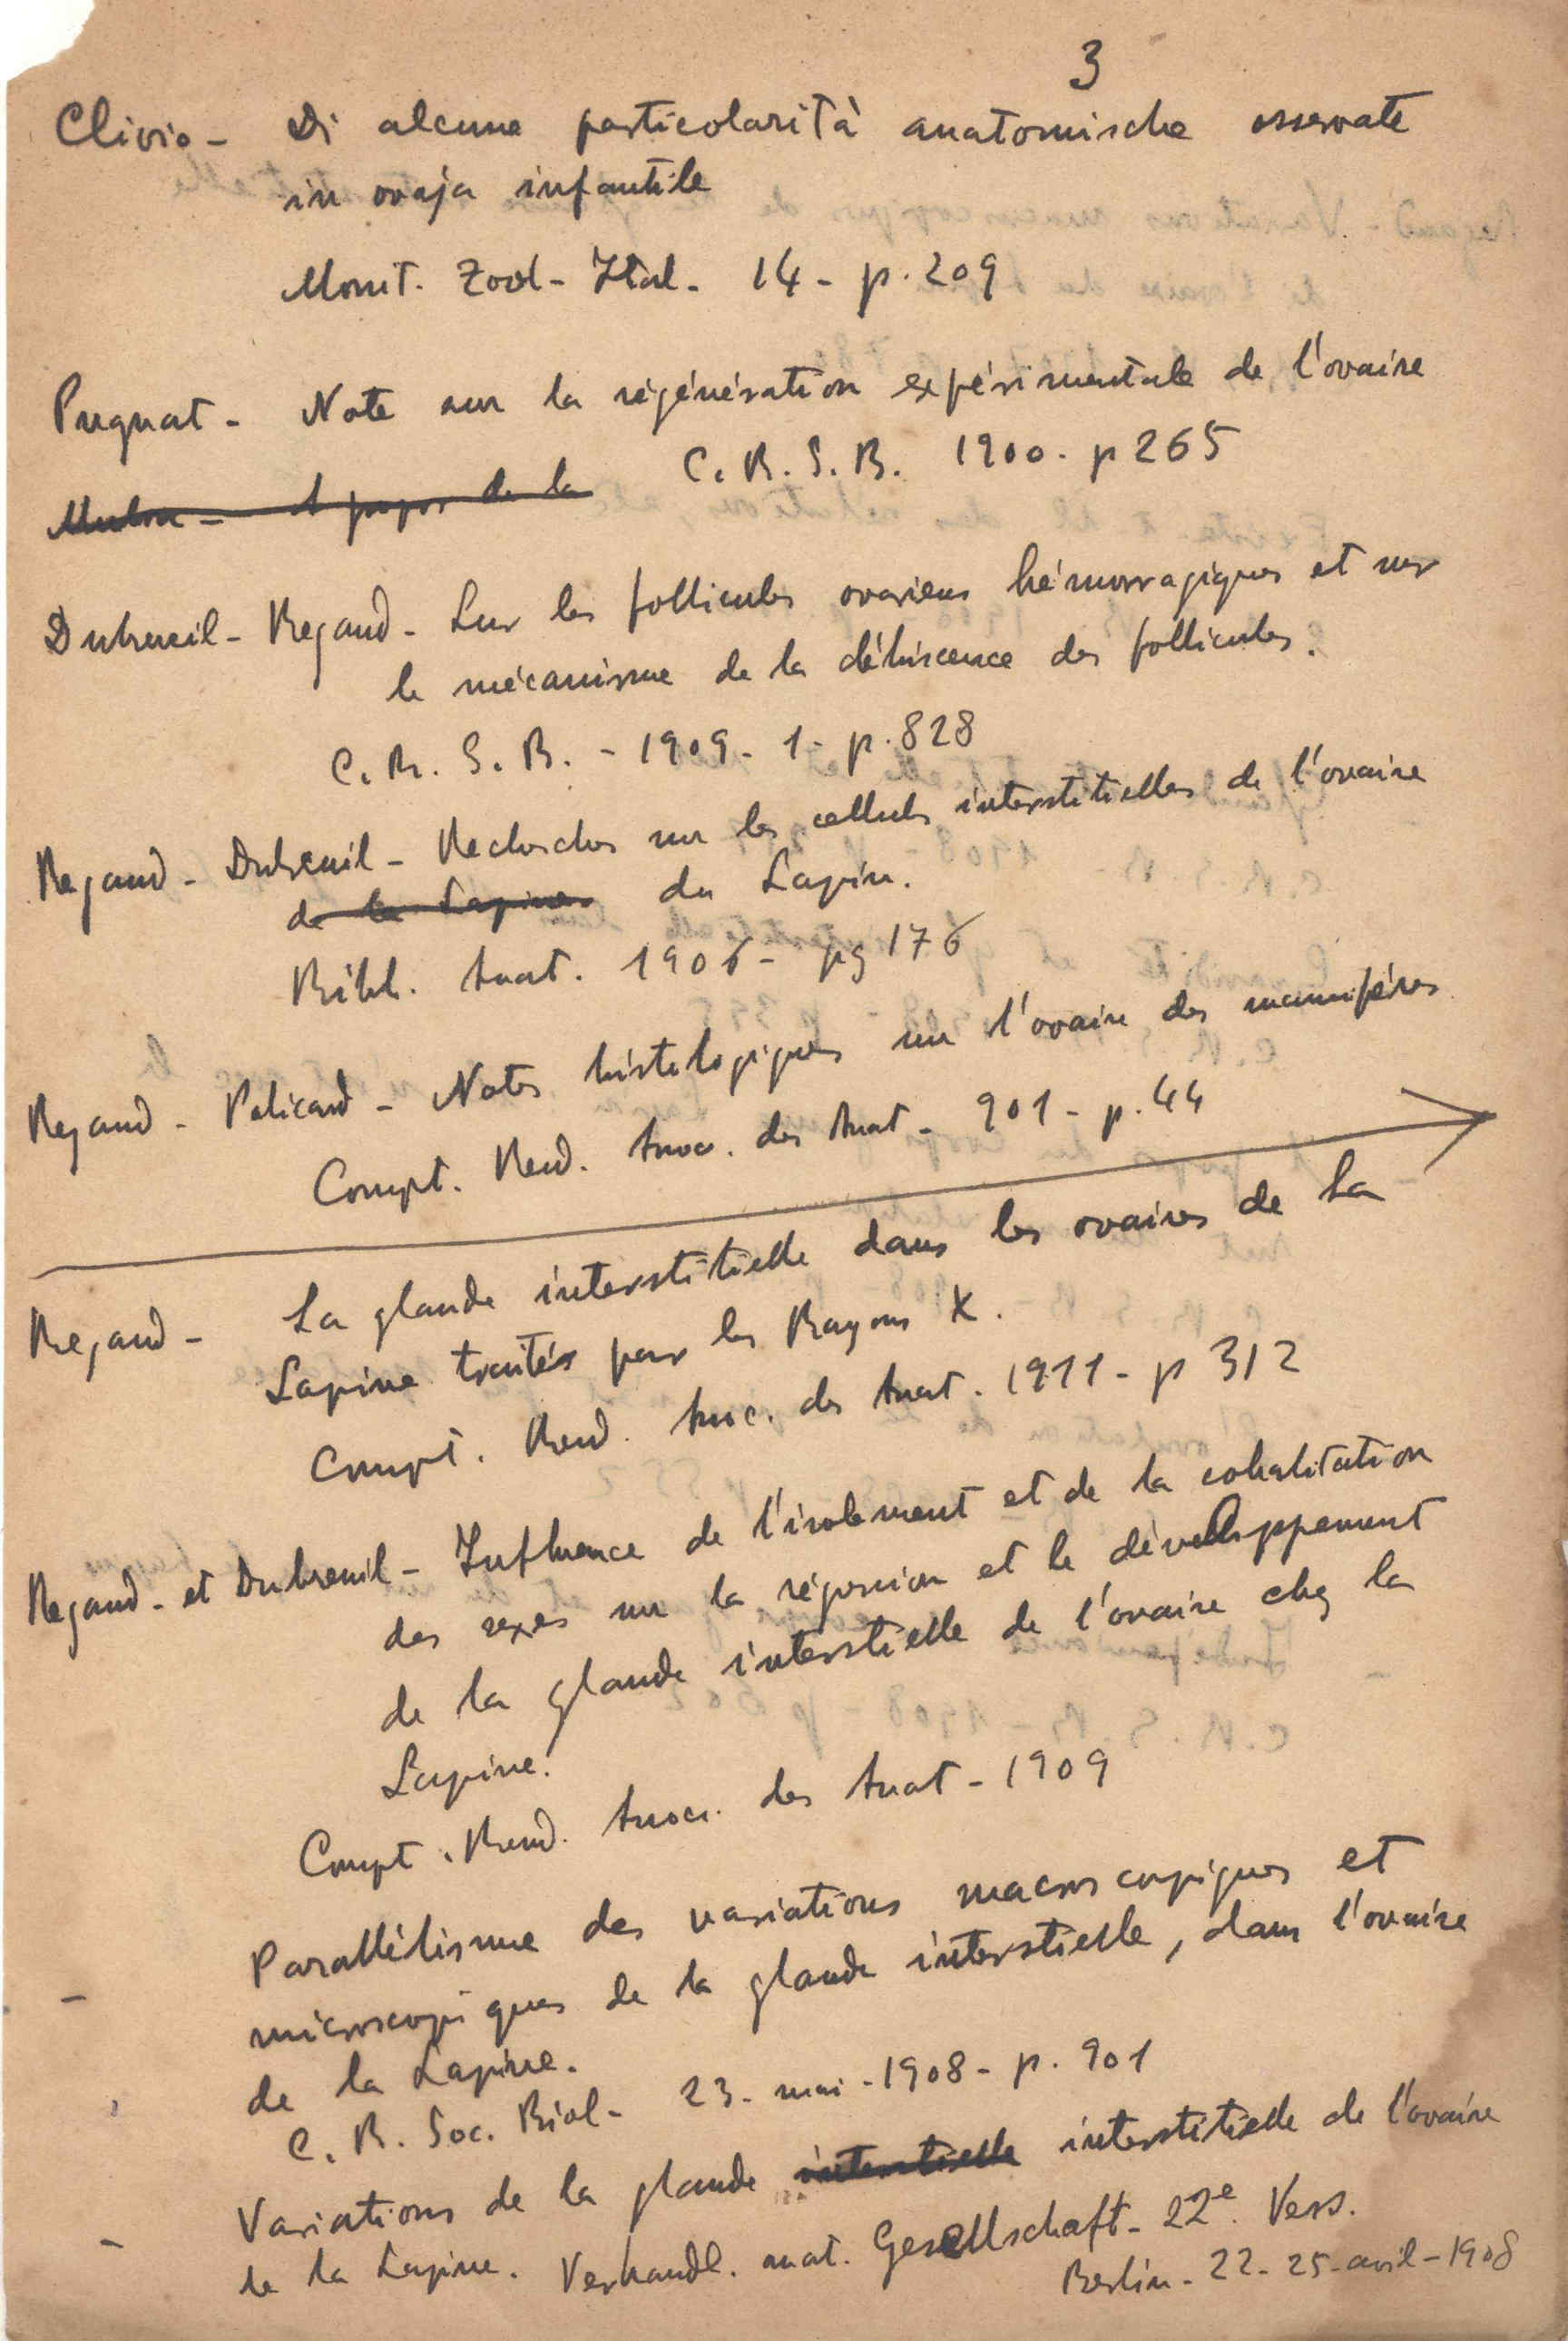 3
Clivio - Di alcune particolarità anatomische osservate
in ovaja infantile
Monit. Zool - Ital - 14 - p. 209
Pugnat - Note sur la régénération expérimentale de l'ovaire
C. R. S. B. 1900 - p 265
A propos de la
Dubreuil - Regaud - Sur les follicules ovariens hémorragiques et sur
le mécanisme de la déhiscence des follicules.
C. R. S. B. - 1909 - 1 - p. 828
Regaud - Dubreuil - Recherches sur les cellules interstitielles de l'ovaire
de la Lapine du Lapin.
Bibl. Anat. 1906 - pg 176
Regaud - Policard - Notes histologiques sur l'ovaire des mammifères
Compt. Rend. Assoc. des Anat - 901 - p. 44
Regaud - La glande interstitielle dans les ovaires de la
Lapine traités par les Rayons X.
Compt. Rend. Assoc. des Anat. 1911 - p 312
Regaud - et Dubreuil - Influence de l'isolement et de la cohabitation
des sexes sur la régression et le développement
de la glande interstielle de l'ovaire chez la
Lapine.
Compt. Rend. Assoc. des Anat - 1909
- Parallélisme des variations macroscopiques et
microscopiques de la glande interstielle, dans l'ovaire
de la Lapine.
C. R. Soc. Biol - 23 - mai - 1908 - p. 901
- Variations de la glande interstielle interstitielle de l'ovaire
de la Lapine. Verhandl. anat. Gesellschaft - 22e. Vers.
Berlin - 22 - 25 - avril - 1908